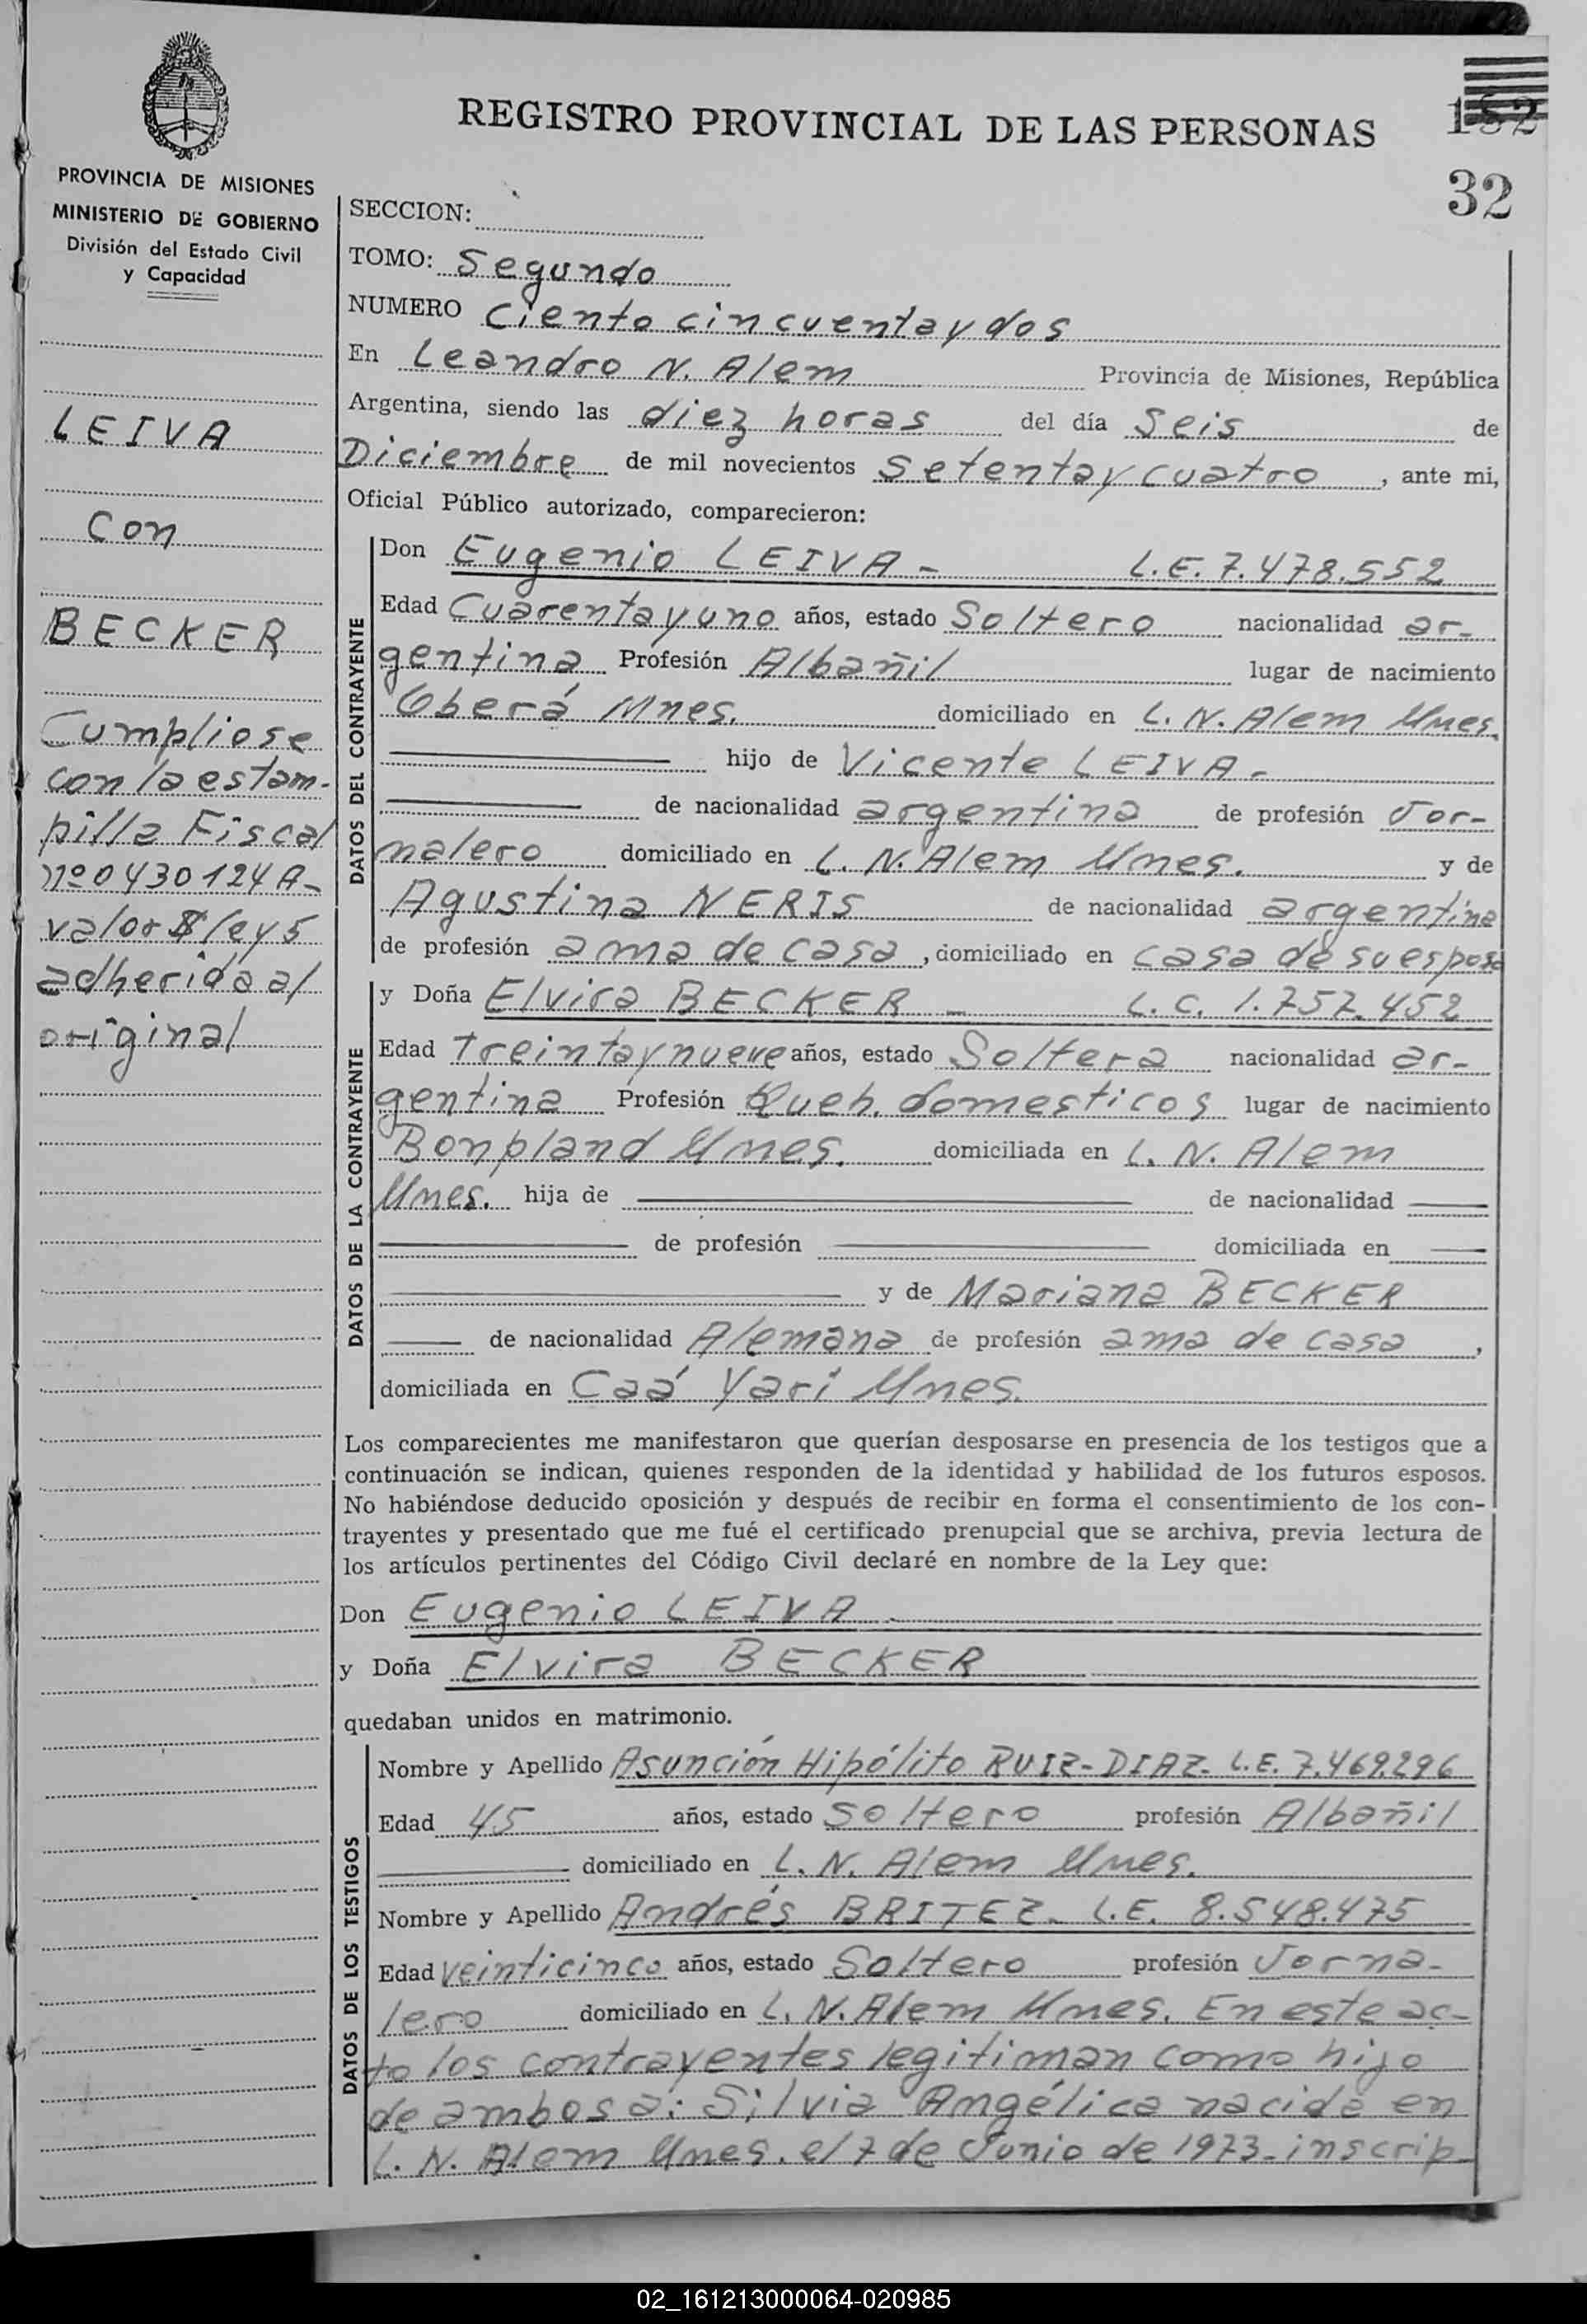 REGISTRO PROVINCIAL DE LAS PERSONAS
152
32
PROVINCIA DE MISIONES
MINISTERIO DE GOBIERNO
División del Estado Civil
y Capacidad
LEIVA
con
BECKER
Cumpliose
con la estam-
pilla Fiscal
nº 0430124 A-
valor $ ley 5
adherida al
original
SECCION:
TOMO: Segundo
NUMERO Ciento cincuenta y dos
En Leandro N. Alem Provincia de Misiones, República
Argentina, siendo las diez horas del día Seis de
Diciembre de mil novecientos Setenta y cuatro, ante mi,
Oficial Público autorizado, comparecieron:
DATOS DEL CONTRAYENTE
Don Eugenio LEIVA - L.E. 7.478.552
Edad Cuarenta y uno años, estado Soltero nacionalidad ar-
gentina Profesión Albañil lugar de nacimiento
Oberá Mnes. domiciliado en L. N. Alem Mnes.
hijo de Vicente LEIVA -
de nacionalidad argentina de profesión Jor-
nalero domiciliado en L. N. Alem Mnes. y de
Agustina NERIS de nacionalidad argentina
de profesión ama de casa, domiciliado en casa de su esposo
DATOS DE LA CONTRAYENTE
y Doña Elvira BECKER - L. C. 1.757.452
Edad Treinta y nueve años, estado Soltera nacionalidad ar-
gentina Profesión Queh. domesticos lugar de nacimiento
Bonpland Mnes. domiciliada en L. N. Alem
Mnes. hija de de nacionalidad
de profesión domiciliada en
y de Mariana BECKER
de nacionalidad Alemana de profesión ama de casa,
domiciliada en Caá Yarí Mnes.
Los comparecientes me manifestaron que querían desposarse en presencia de los testigos que a
continuación se indican, quienes responden de la identidad y habilidad de los futuros esposos.
No habiéndose deducido oposición y después de recibir en forma el consentimiento de los con-
trayentes y presentado que me fué el certificado prenupcial que se archiva, previa lectura de
los artículos pertinentes del Código Civil declaré en nombre de la Ley que:
Don Eugenio LEIVA -
y Doña Elvira BECKER
quedaban unidos en matrimonio.
DATOS DE LOS TESTIGOS
Nombre y Apellido Asunción Hipólito RUIZ-DIAZ- L.E. 7.469.296
Edad 45 años, estado Soltero profesión Albañil
domiciliado en L. N. Alem Mnes.
Nombre y Apellido Andrés BRITEZ- L.E. 8.548.475
Edad veinticinco años, estado Soltero profesión Jorna-
lero domiciliado en L. N. Alem Mnes. En este ac-
to los contrayentes legitiman como hijo
de ambos a: Silvia Angélica nacida en
L. N. Alem Mnes. el 7 de Junio de 1973-inscrip
02_161213000064-020985